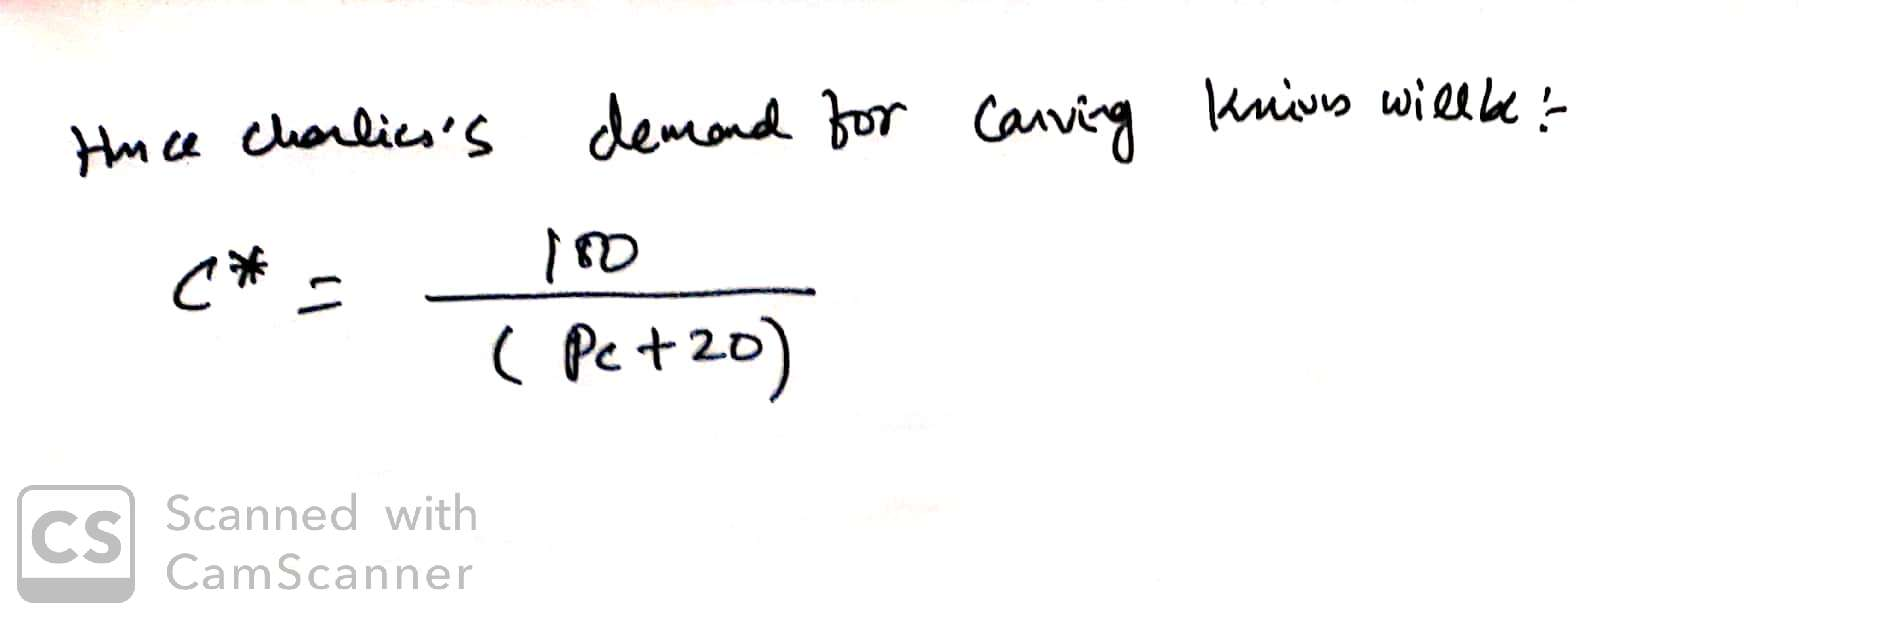 Hence charlies's demand for carving knives will be :-
C* = 100
( Pc + 20 )
CS Scanned with
CamScanner